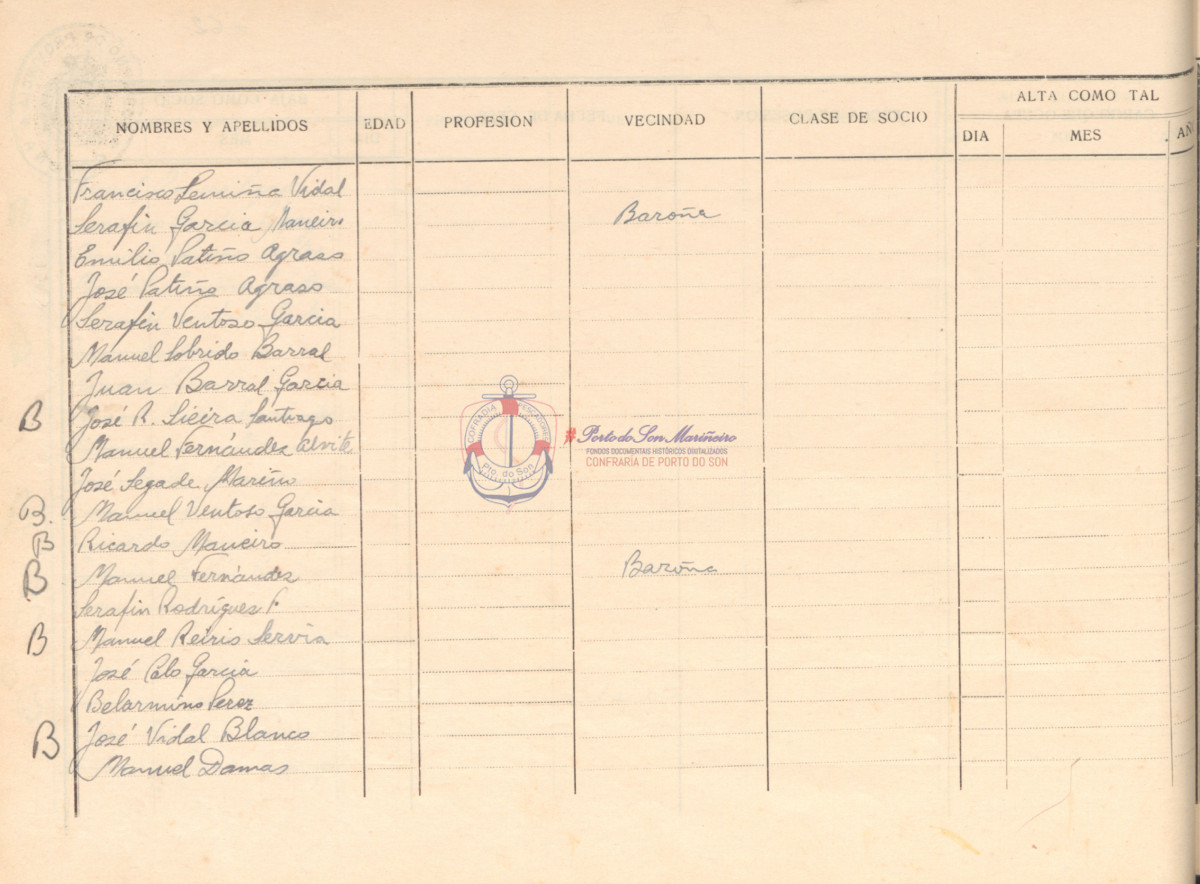 ALTA COMO TAL
NOMBRES Y APELLIDOS EDAD PROFESION VECINDAD CLASE DE SOCIO DIA MES AÑ
Francisco Lemiña Vidal
Serafin Garcia Maneiro Baroña
Emilio Patiño Agraso
José Patiño Agraso
Serafin Ventoso Garcia
Manuel Sobrido Barral
Juan Barral Garcia
B José R. Sieira Santiago
Manuel Fernández Alvite
José Segade Mariño
B. Manuel Ventoso Garcia
B Ricardo Maneiro
B Manuel Fernández Baroña
Serafin Rodrígues F.
B Manuel Reiris Servia
José Polo Garcia
Belarmino Perez
B José Vidal Blanco
Manuel Damas
COFRADIA PESCADORES
Pto. do Son
Porto do Son Mariñeiro
FONDOS DOCUMENTAIS HISTÓRICOS DIXITALIZADOS
CONFRARÍA DE PORTO DO SON